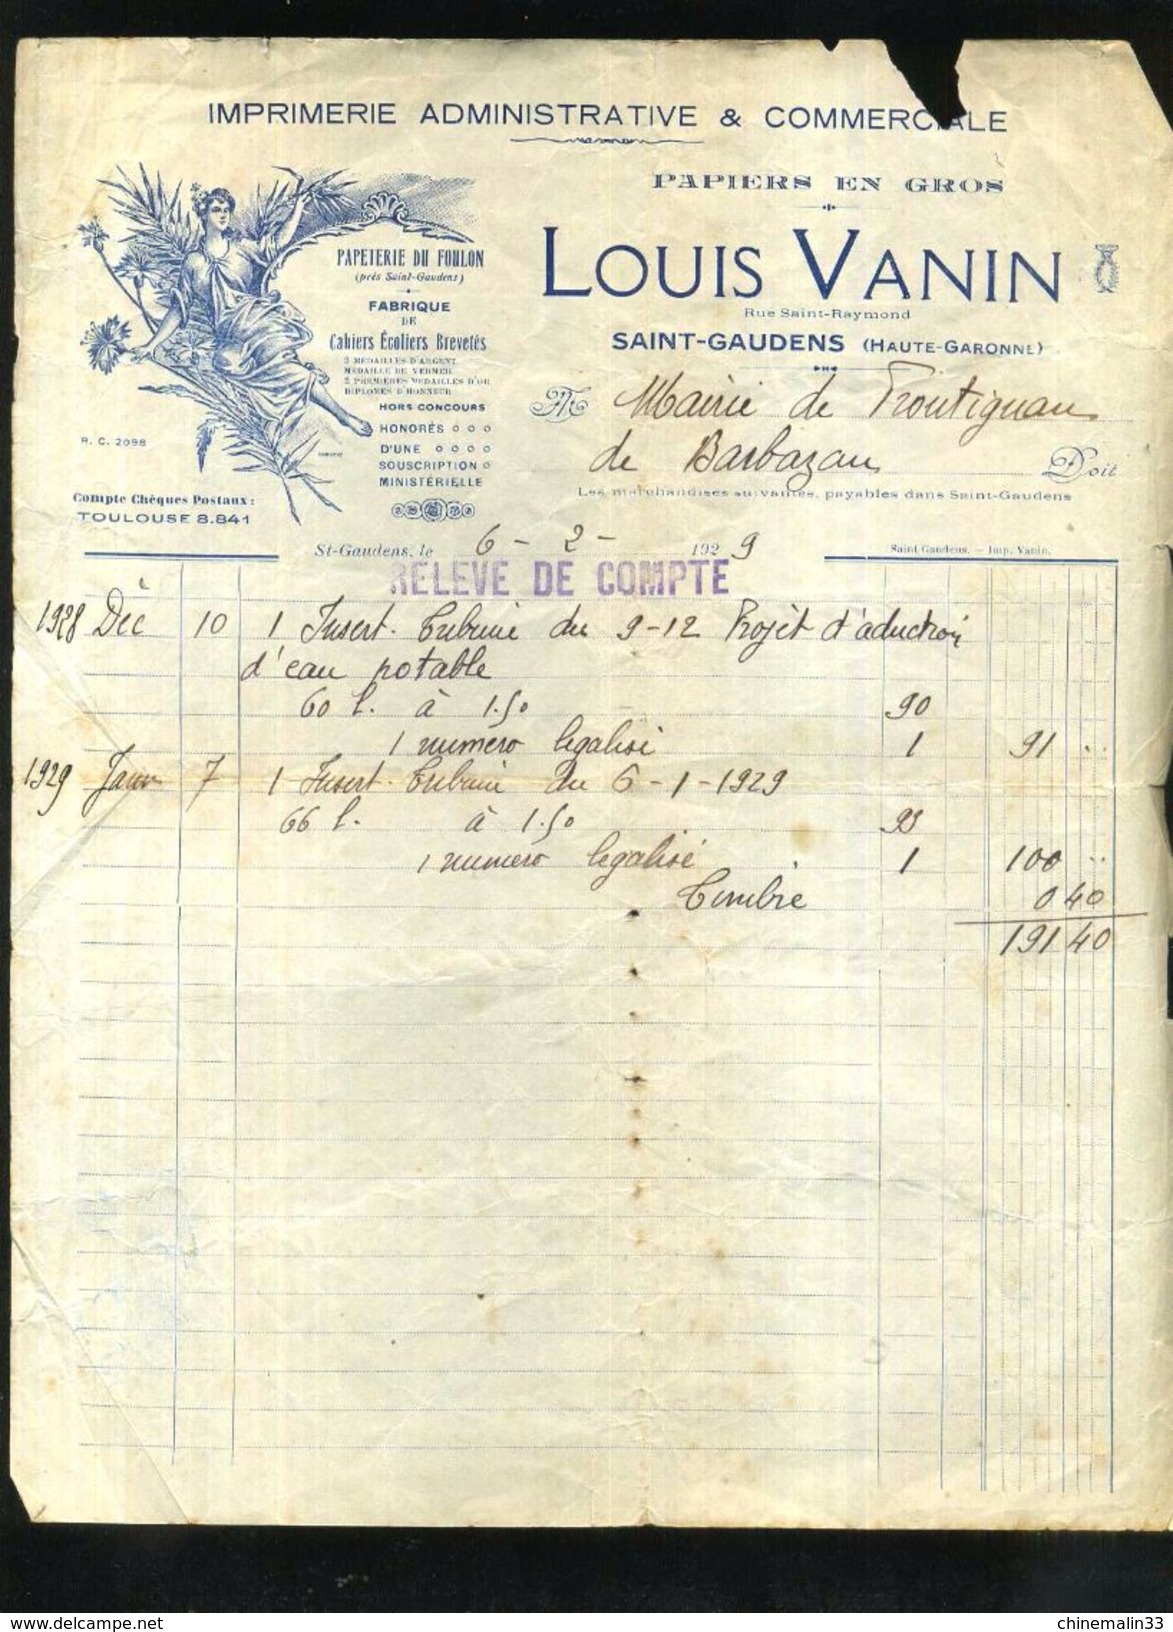 IMPRIMERIE ADMINISTRATIVE & COMMERCIALE
PAPIERS EN GROS
LOUIS VANIN
Rue Saint-Raymond
SAINT-GAUDENS (HAUTE-GARONNE)
PAPETERIE DU FOULON
(près Saint-Gaudens)
FABRIQUE
DE
Cahiers Écoliers Brevetés
2 MÉDAILLES D'ARGENT
MÉDAILLE DE VERMEIL
2 PREMIÈRES MÉDAILLES D'OR
DIPLOMES D'HONNEUR
HORS CONCOURS
HONORÉS
D'UNE
SOUSCRIPTION
MINISTÉRIELLE
R. C. 2098
Compte Chèques Postaux :
TOULOUSE 8.841
M Mairie de Frontignan
de Barbazan Doit
Les marchandises suivantes, payables dans Saint-Gaudens
St-Gaudens, le 6 - 2 - 1929
Saint-Gaudens. — Imp. Vanin.
RELEVÉ DE COMPTE
1928 Déc 10 1 Insert. Tribune du 9-12 Projet d'aduction
d'eau potable
60 l. à 1.50 90
1 numéro légalisé 1 91 ..
1929 Janv 7 1 Insert. Tribune du 6-1-1929
66 l. à 1.50 99
1 numéro légalisé 1 100 ..
Timbre 0 40
191 40
delcampe.net
chinemalin33